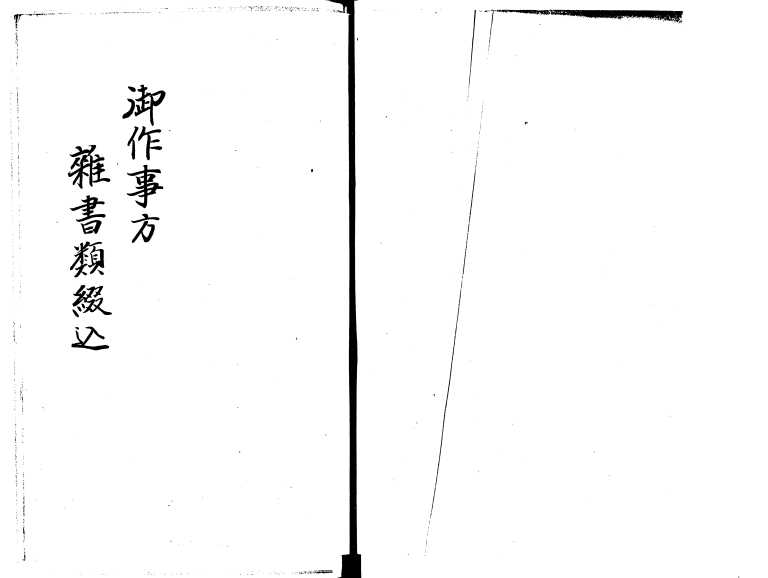 御作事方
雜書類綴込